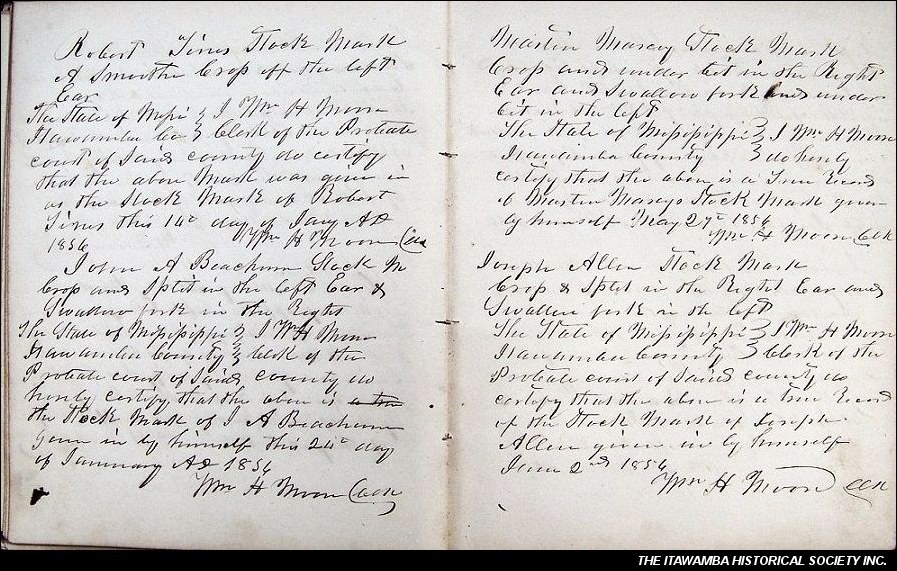 Robert Sims Stock Mark
A Smoothe Crop off the left
Ear
The State of Mipi } I Wm H Moon
Itawamba Co } Clerk of the Probate
court of Said county do certify
that the above Mark was given in
as the Stock Mark of Robert
Sims this 14th day of Jany AD
1856 Wm H Moon Clk
John A Beachum Stock M
Crop and Split in the left Ear &
Swallow fork in the Right
The State of Mipipippi } I Wm H Moon
Itawamba County } Clerk of the
Probate court of Said county do
hereby certify that the above is a true
the Stock Mark of J A Beachum
given in by himself this 24th day
of January AD 1856
Wm H Moon Clk
Marten Maxey Stock Mark
Crop and under bit in the Right
Ear and Swallow fork and under
bit in the left
The State of Mipipippi } I Wm H Moon
Itawamba County } do hereby
certify that the above is a True Record
of Marten Maxeys Stock Mark given
by himself May 27th 1856
Wm H Moon Clk
Joseph Allen Stock Mark
Crop & Split in the Right Ear and
Swallow fork in the left
The State of Mipipippi } I Wm H Moon
Itawamba County } Clerk of the
Probate court of Said county do
certify that the above is a true Record
of the Stock Mark of Joseph
Allen given in by himself
June 2nd 1856
Wm H Moon Clk
THE ITAWAMBA HISTORICAL SOCIETY INC.